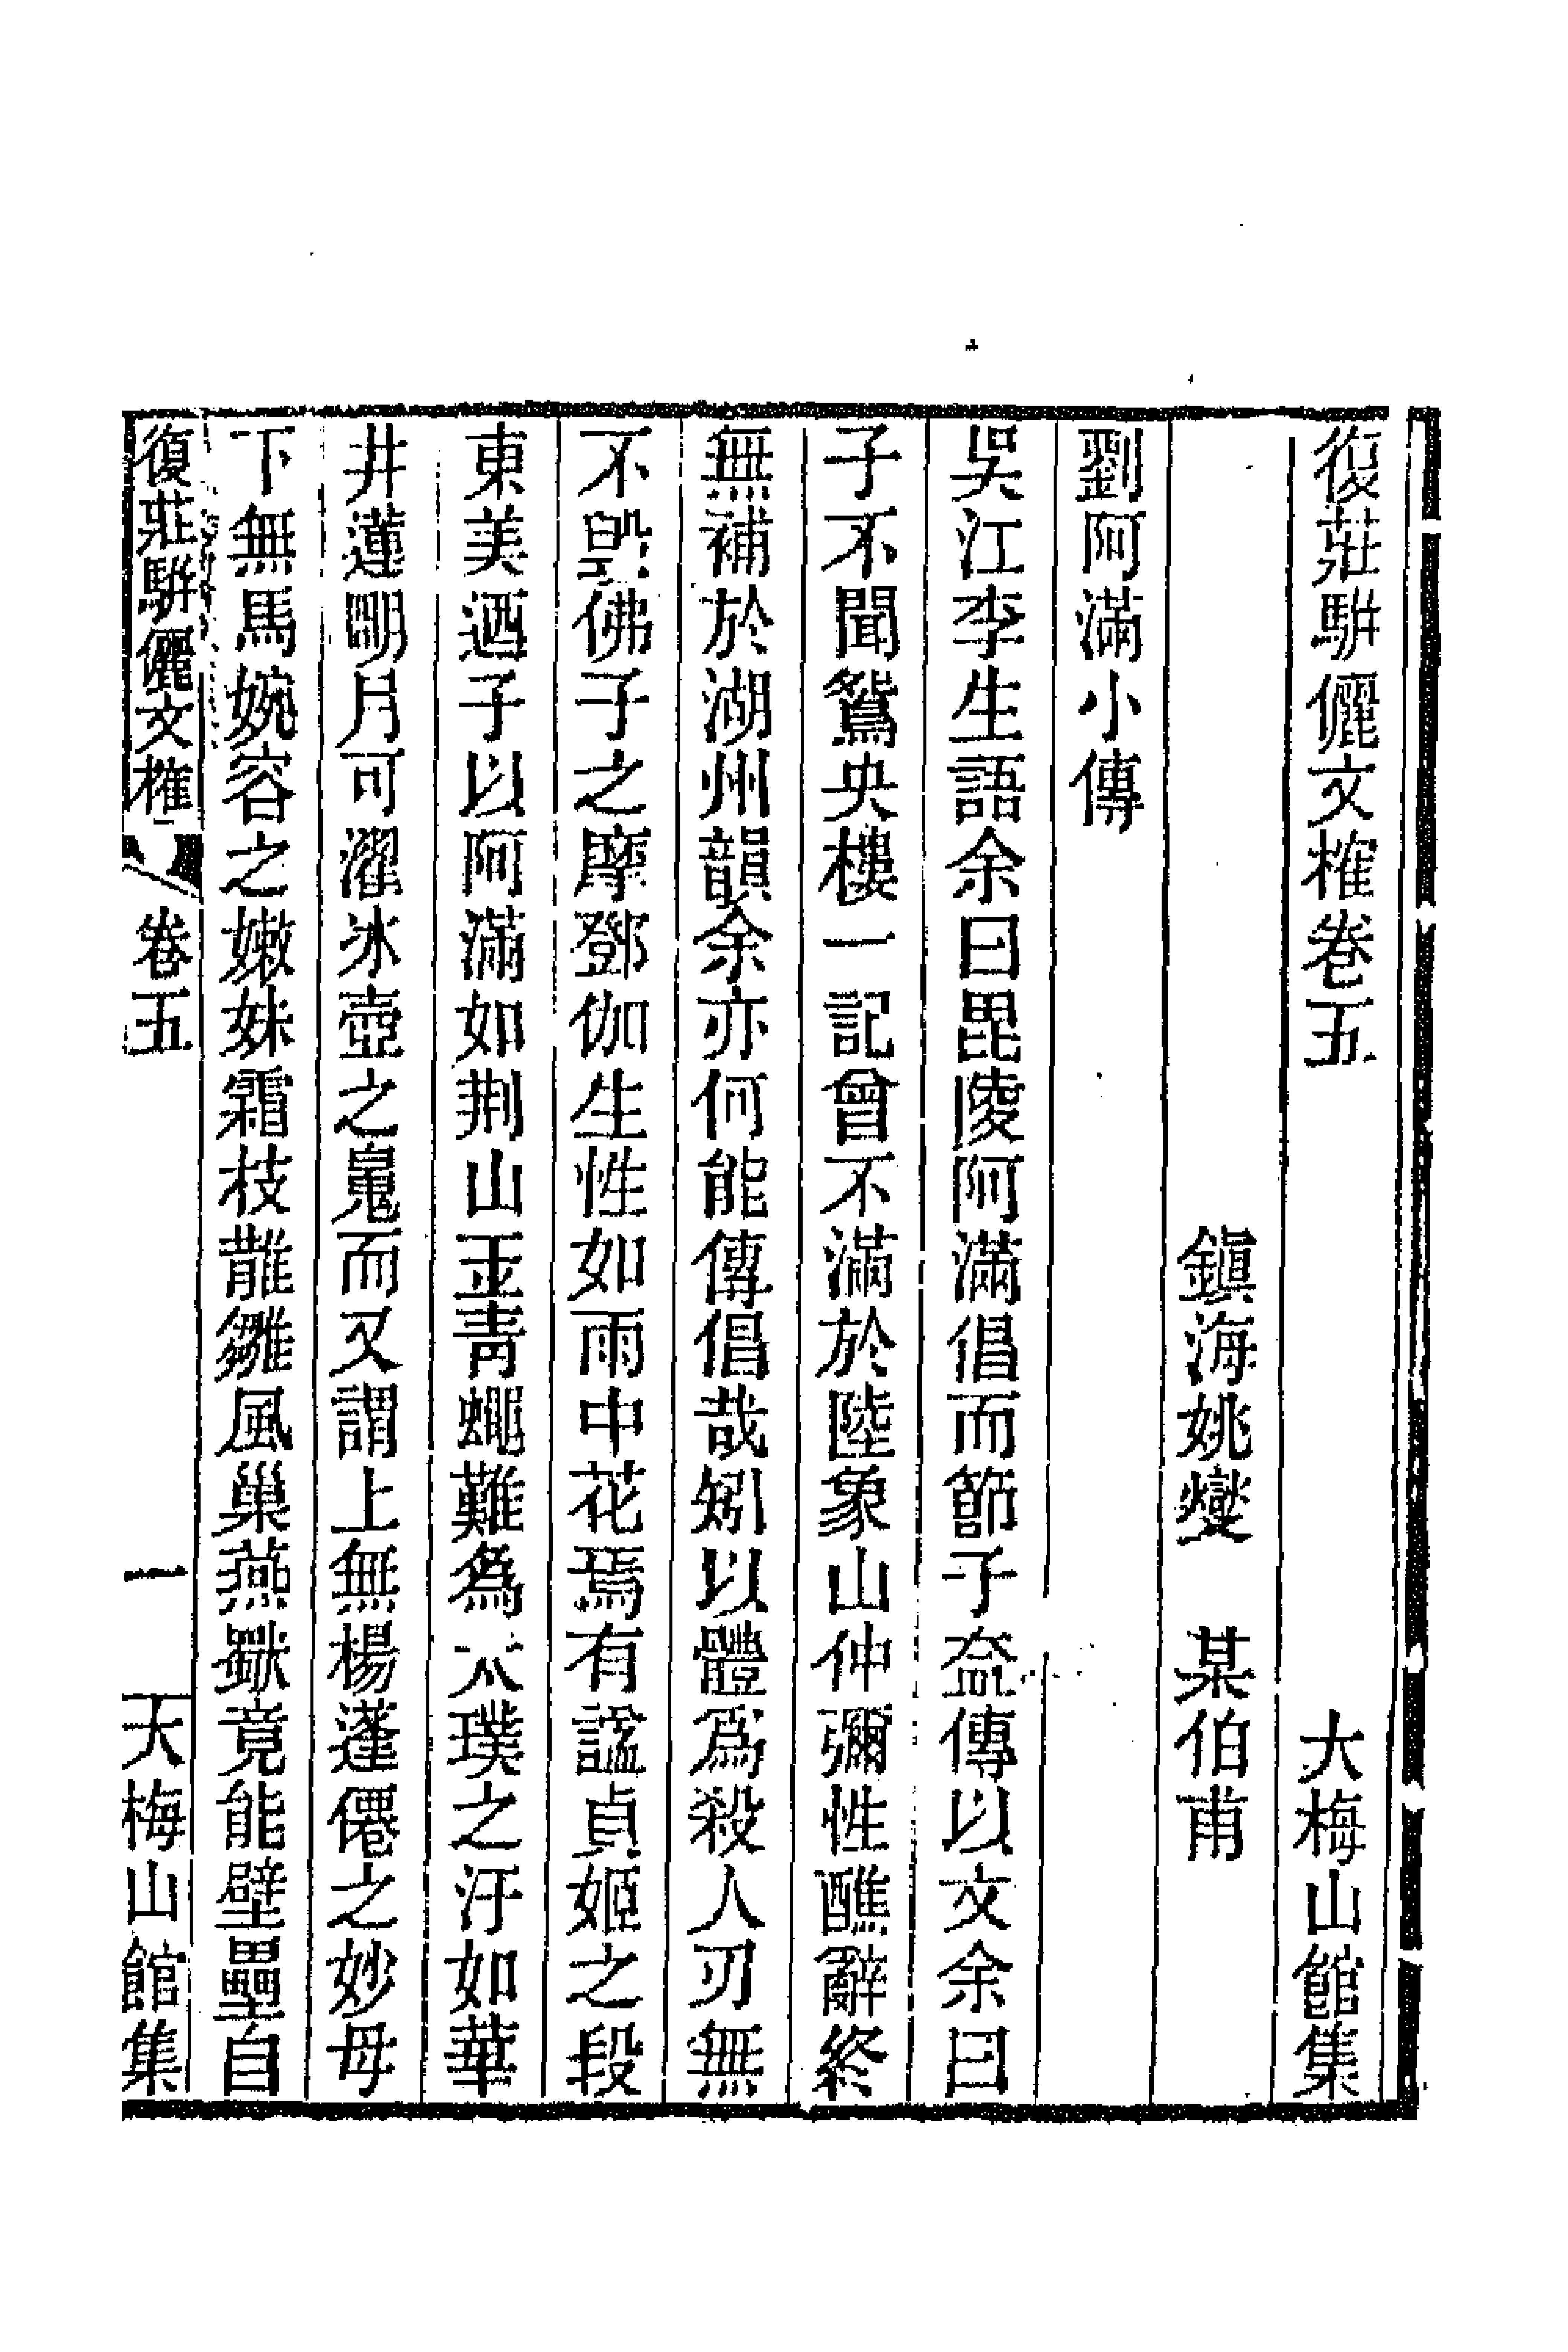 復莊駢儷文榷卷五　大梅山館集
鎮海姚燮　某伯甫
劉阿滿小傳
吳江李生語余曰毘陵阿滿倡而節子盍傳以文余曰
子不聞鴛央樓一記曾不滿於陸象山仲彌性醮辭終
無補於湖州韻余亦何能傳倡哉矧以體爲殺人刃無
不毀佛子之摩鄧伽生性如雨中花焉有諡貞姬之段
東美迺子以阿滿如荆山玉靑蠅難爲太璞之汙如華
井蓮明月可濯冰壺之䰟而又謂上無楊蓬僊之妙母
下無馬婉容之嫩妹霜枝雛風巢燕竟能壁壘自
復莊駢儷文榷　卷五　一　大梅山館集